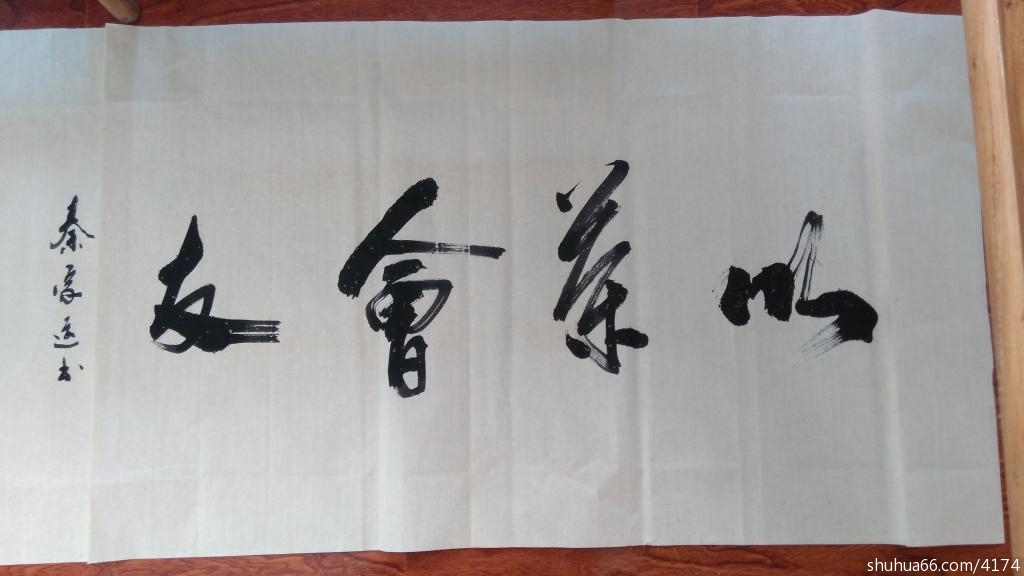 以茶會友
秦书
shuhua66.com/4174